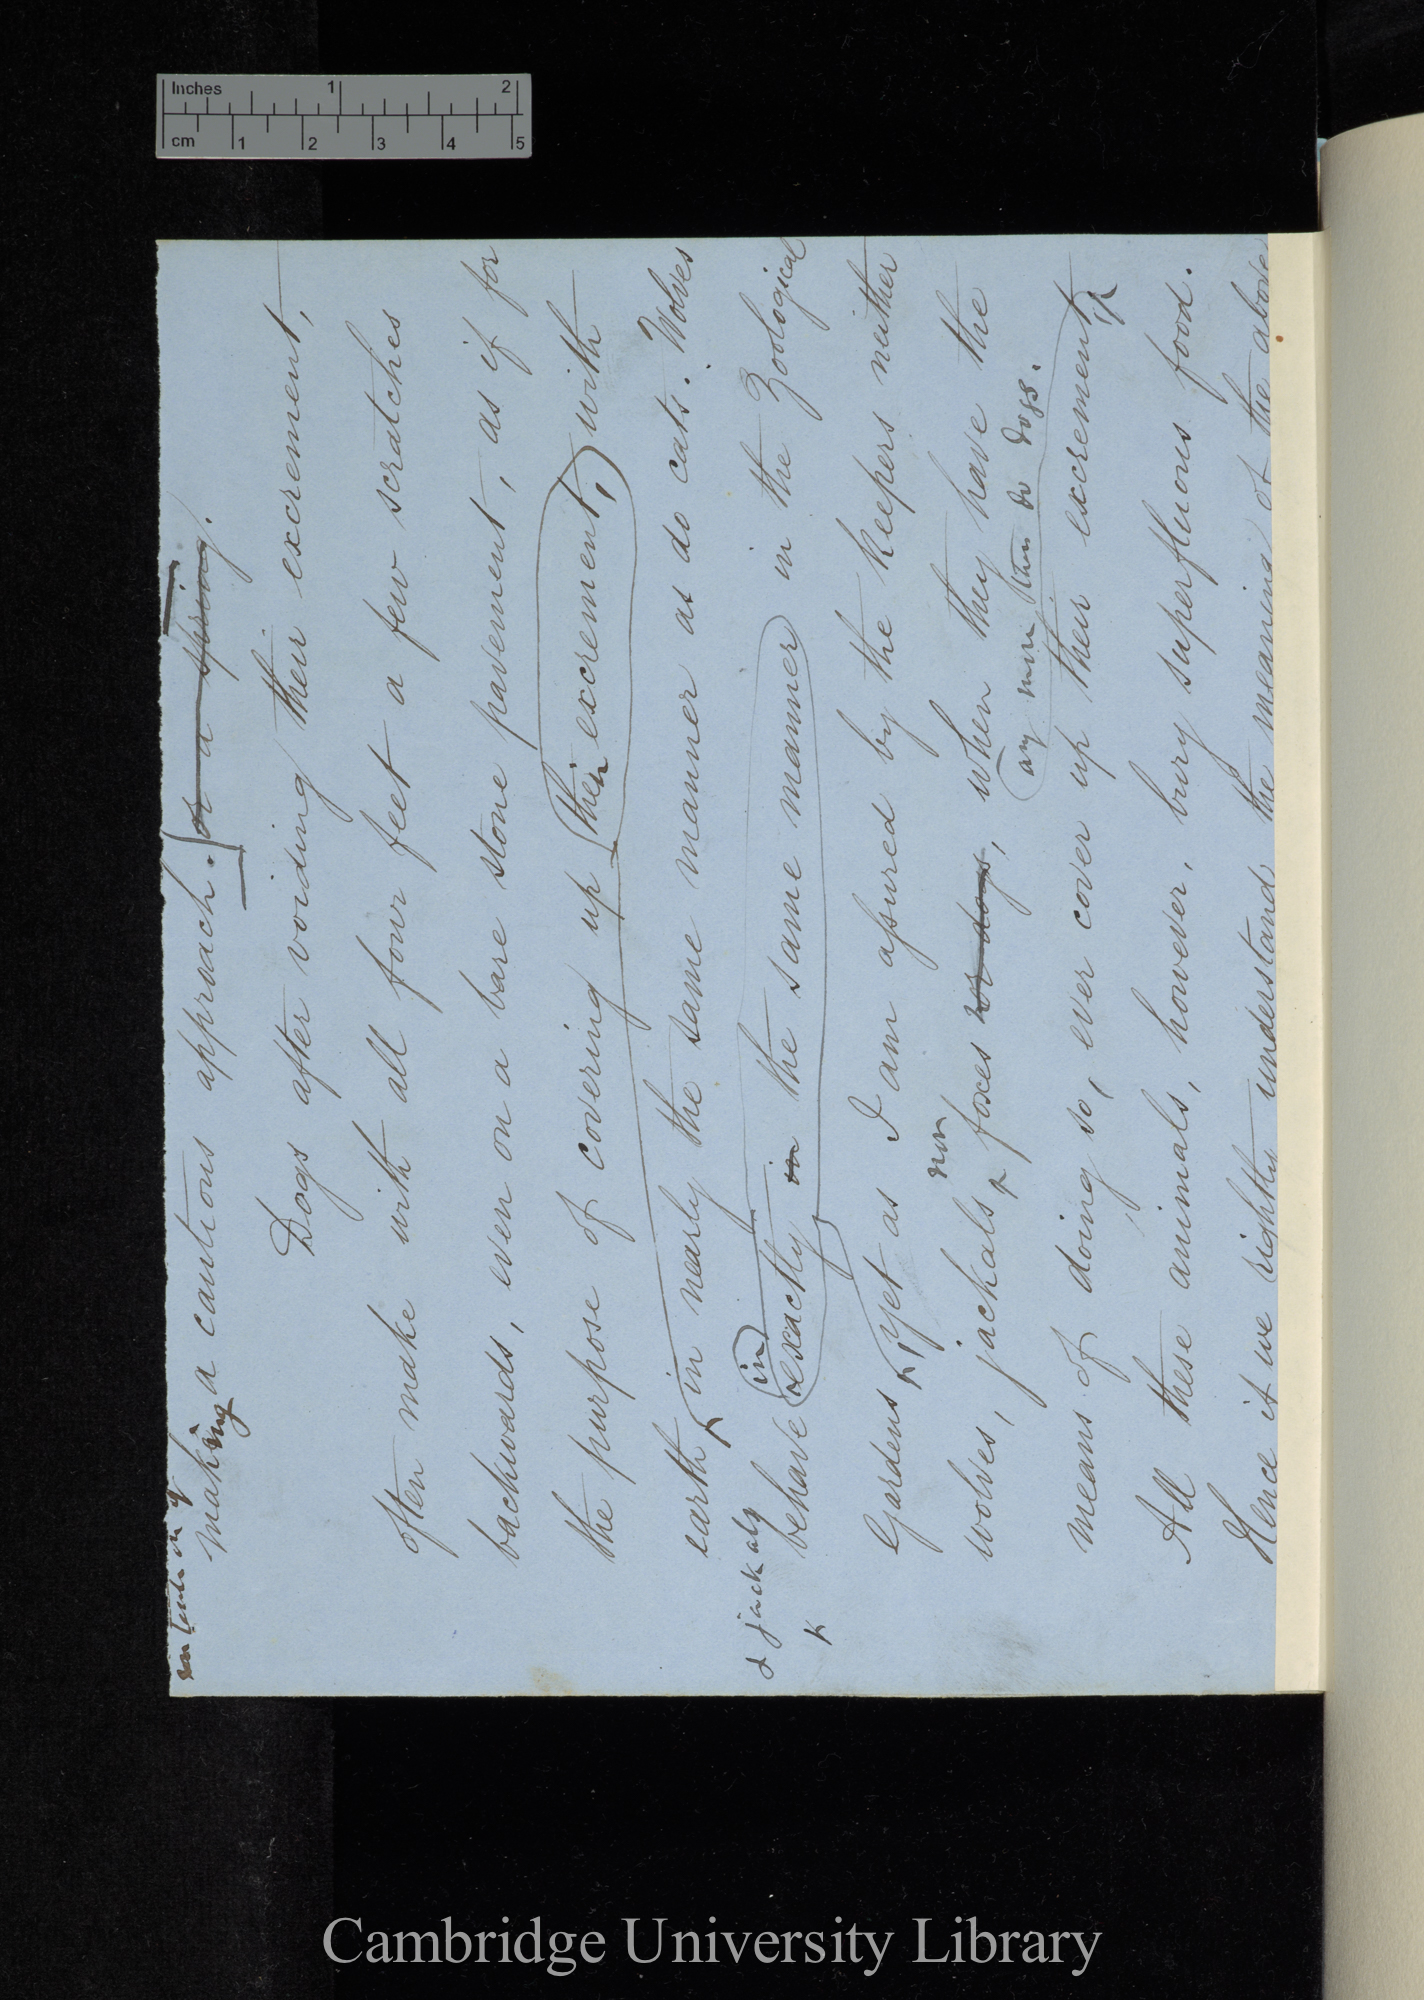 Inches 1 2
cm 1 2 3 4 5
making a cautious approach. or a spring.
Dogs after voiding their excrement,
often make with all four feet a few scratches
backwards, even on a bare stone pavement, as if for
the purpose of covering up their excrement, with
earth, in nearly the same manner as do cats. Wolves
& jackals
behave in exactly in the same manner in the Zoological
Gardens, yet as I am assured by the keepers neither
nor
wolves, jackals, foxes or dogs, when they have the
any more than do dogs.
means of doing so, ever cover up their excrement
All these animals, however, bury superfluous food.
Hence if we rightly understand the meaning of the above
Cambridge University Library